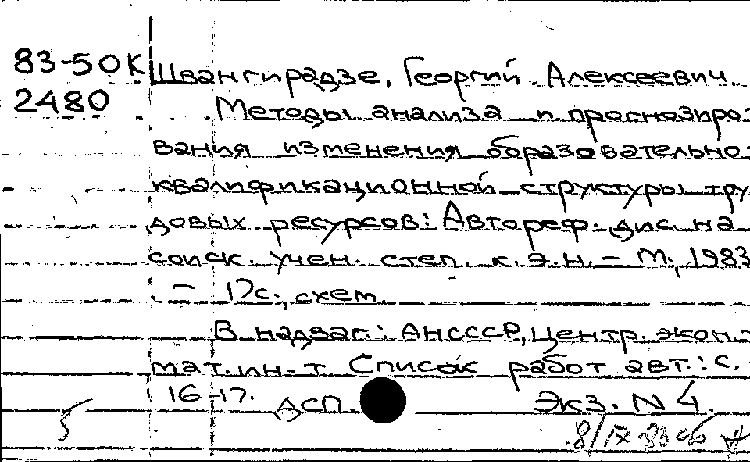 83-50К Швангирадзе, Георгий Алексеевич
2480 Методы анализа и прогнозиро-
вания изменения образовательно-
квалификационной структуры тру-
довых ресурсов: Автореф. дис. на
соиск. учен. степ. к.э.н. – М., 1983
. – 17с., схем.
В надзаг.: АНСССР, Центр. экон.-
мат. ин-т. Список работ авт.: с.
16-17. ДСП. Экз. N 4.
5